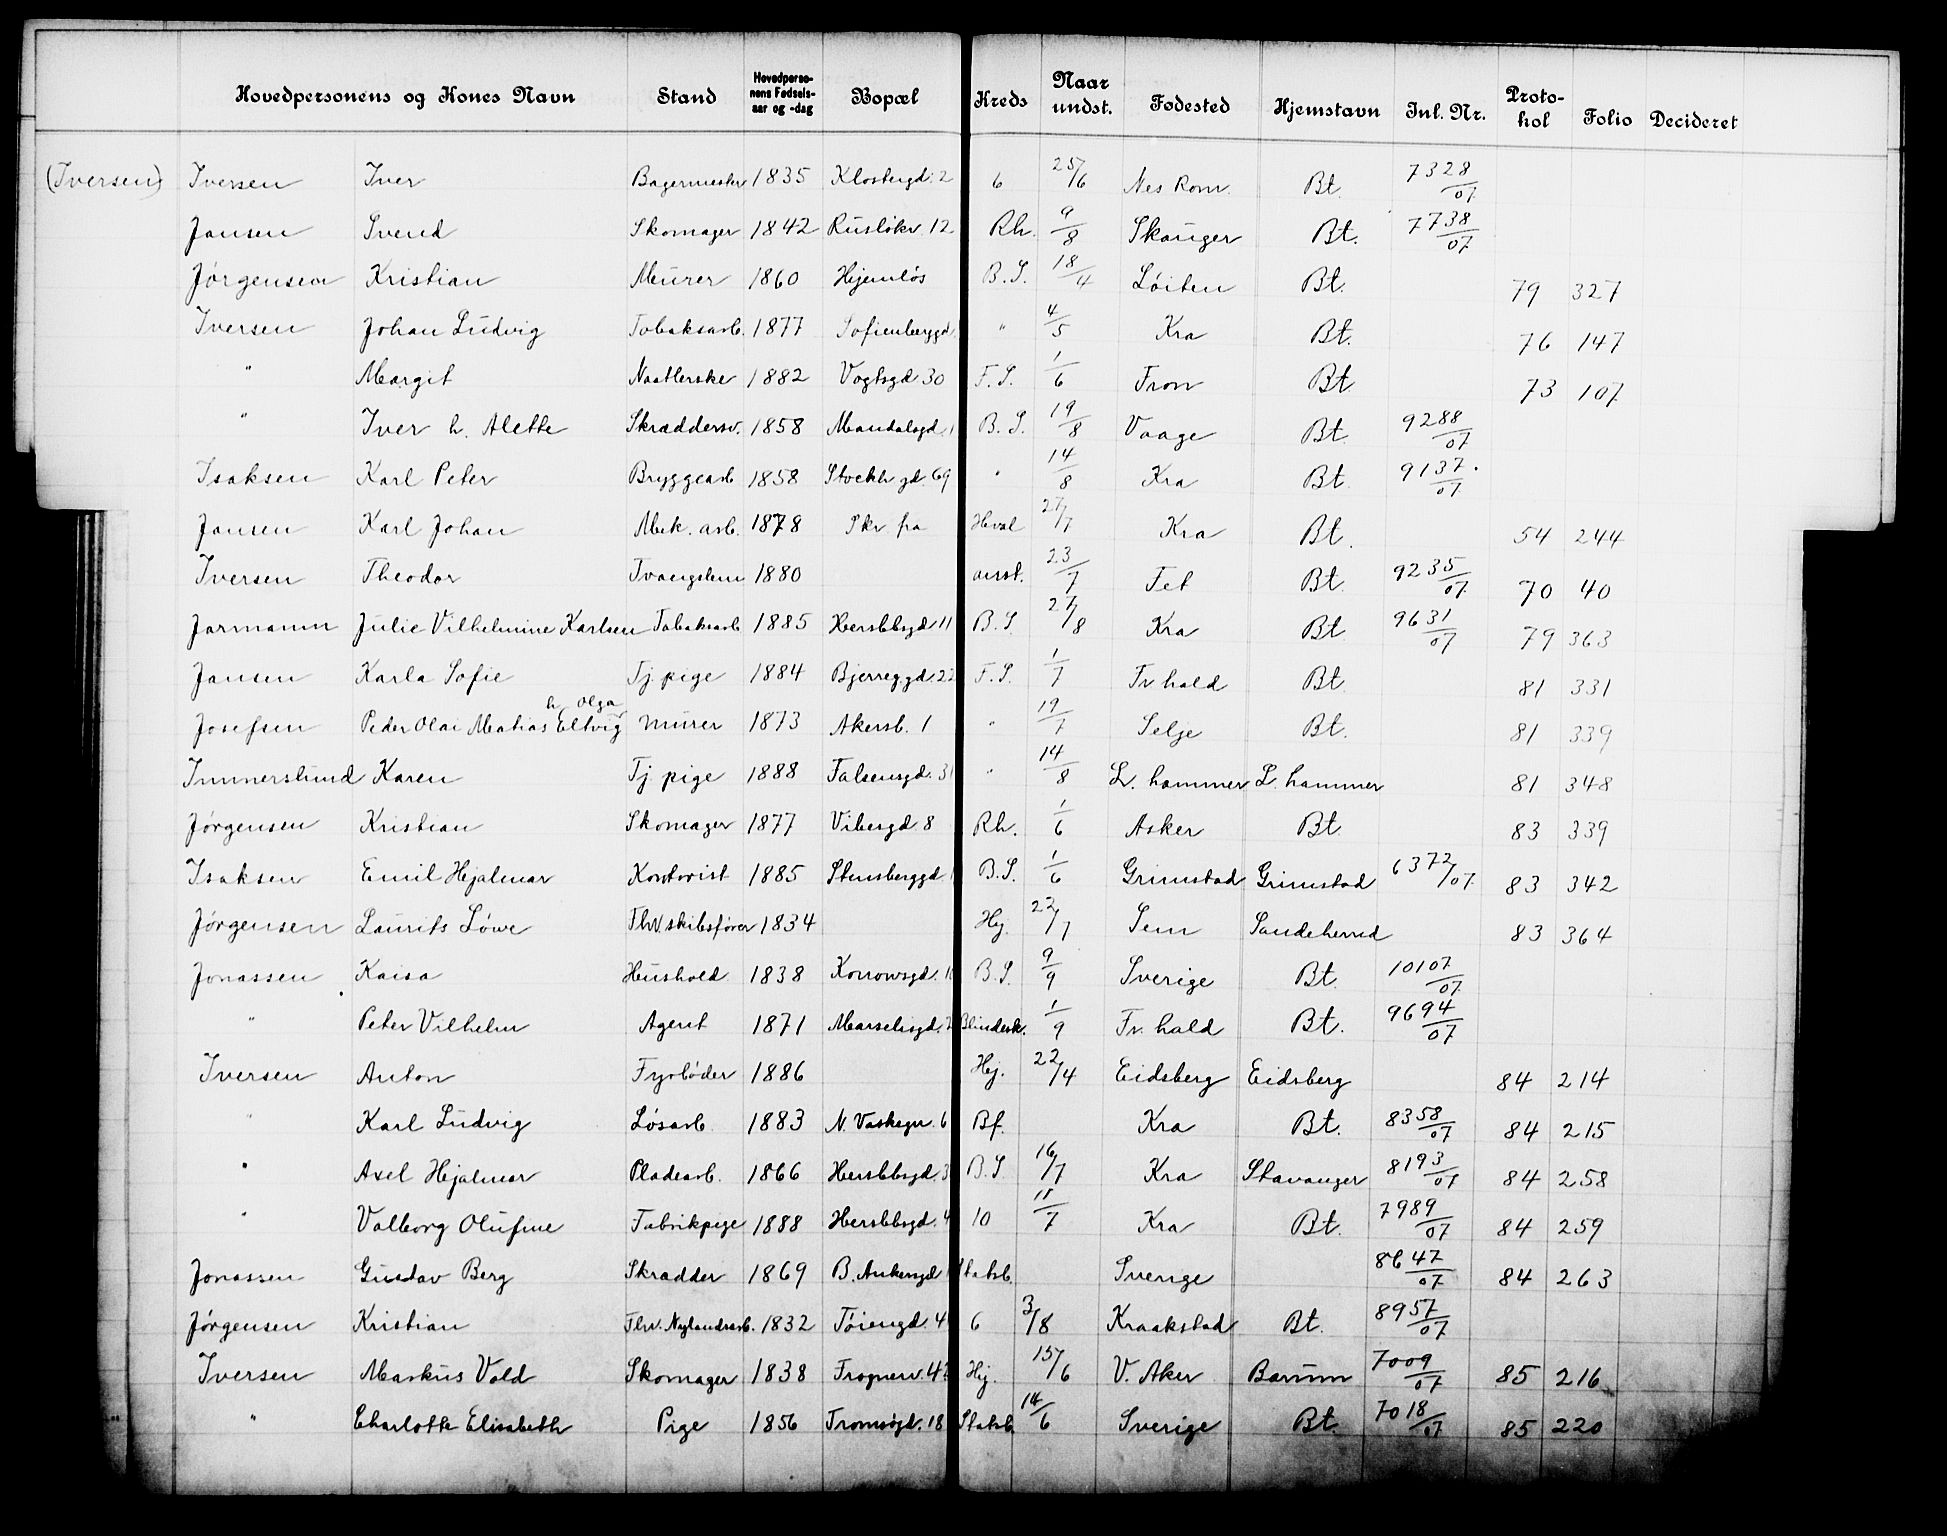 Hovedpersonens og Kones Navn Stand Hovedpersonens Fødselsaar og -dag Bopæl Kreds Naar undst. Fødested Hjemstavn Inl. Nr. Protokol Folio Decideret
(Iversen) Iversen Iver Bagermester 1835 Klostergd. 2 6 25/6 Nes Rom. Bt. 7328/07
Jansen Svend Skomager 1842 Rusløkv. 12 Rh. 9/8 Skauger Bt. 7738/07
Jørgensen Kristian Murer 1860 Hjemløs B.S. 18/4 Løiten Bt. 79 327
Iversen Johan Ludvig Tobaksarb. 1877 Sofienberggd. " 4/5 Kra Bt. 76 147
" Margit Naatlerske 1882 Vogtsgd. 30 F.S. 1/6 Fron Bt. 73 107
" Iver h. Alette Skræddersv. 1858 Mandalsgd. 1 B.S. 19/8 Vaage Bt. 9288/07
Isaksen Karl Peter Bryggearb 1858 Stockh.gd. 69 " 14/8 Kra Bt. 9137/07
Jansen Karl Johan Mek. arb. 1878 Skr. fra Hval 27/7 Kra Bt. 54 244
Iversen Theodor Tvangslem 1880 anst. 23/7 Fet Bt. 9235/07 70 40
Jarmann Julie Vilhelmine Karlsen Tobaksarb 1885 Herslebsgd 11 B.S. 27/8 Kra Bt. 9631/07 79 363
Jansen Karla Sofie Tj. pige 1884 Bjerreggd. 22 F.S. 1/7 Fr.hald Bt. 81 331
h. Olga
Josefsen Peder Olai Matias Eltvig Murer 1873 Akersb. 1 " 19/7 Selje Bt. 81 339
Immerslund Karen Tj. pige 1888 Falsensgd. 31 " 14/8 L. hammer L. hammer 81 348
Jørgensen Kristian Skomager 1877 Vibesgd. 8 Rh. 1/6 Asker Bt. 83 339
Isaksen Emil Hjalmar Kontorist 1885 Stensberggd. 1 B.S. 1/6 Grimstad Grimstad 6372/07 83 342
Jørgensen Laurits Løwe Fhv. skibsfører 1834 Hj. 22/7 Sem Sandeherred 83 364
Jonassen Kaisa Hushold. 1838 Korrowsgd. 1 B.S. 9/9 Sverige Bt. 10107/07
" Peter Vilhelm Agent 1871 Marselisgd. 2 Blindesk. 1/9 Fr. hald Bt. 9694/07
Iversen Anton Fyrbøder 1886 Hj. 22/4 Eidsberg Eidsberg 84 214
" Karl Ludvig Løsarb. 1883 N. Vaskegv. 6 Bf. Kra Bt. 8358/07 84 215
" Axel Hjalmar Pladearb. 1866 Herslebsgd. 3 B.S 16/7 Kra Stavanger 8193/07 84 258
" Valborg Olufine Fabrikpige 1888 Herslebsgd. 4 10 11/7 Kra Bt. 7989/07 84 259
Jonassen Gustav Berg Skrædder 1869 B. Ankersgd 1 Statsb. Sverige 8647/07 84 263
Jørgensen Kristian Fhv. Nylandsarb. 1832 Tøiengd. 4 6 3/8 Kraakstad Bt. 8957/07
Iversen Markus Vold Skomager 1838 Frognerv. 42 Hj. 15/6 V. Aker Bærum 7009/07 85 216
" Charlotte Elisabeth Pige 1856 Tromsøgd. 18 Statsb. 14/6 Sverige Bt. 7018/07 85 220